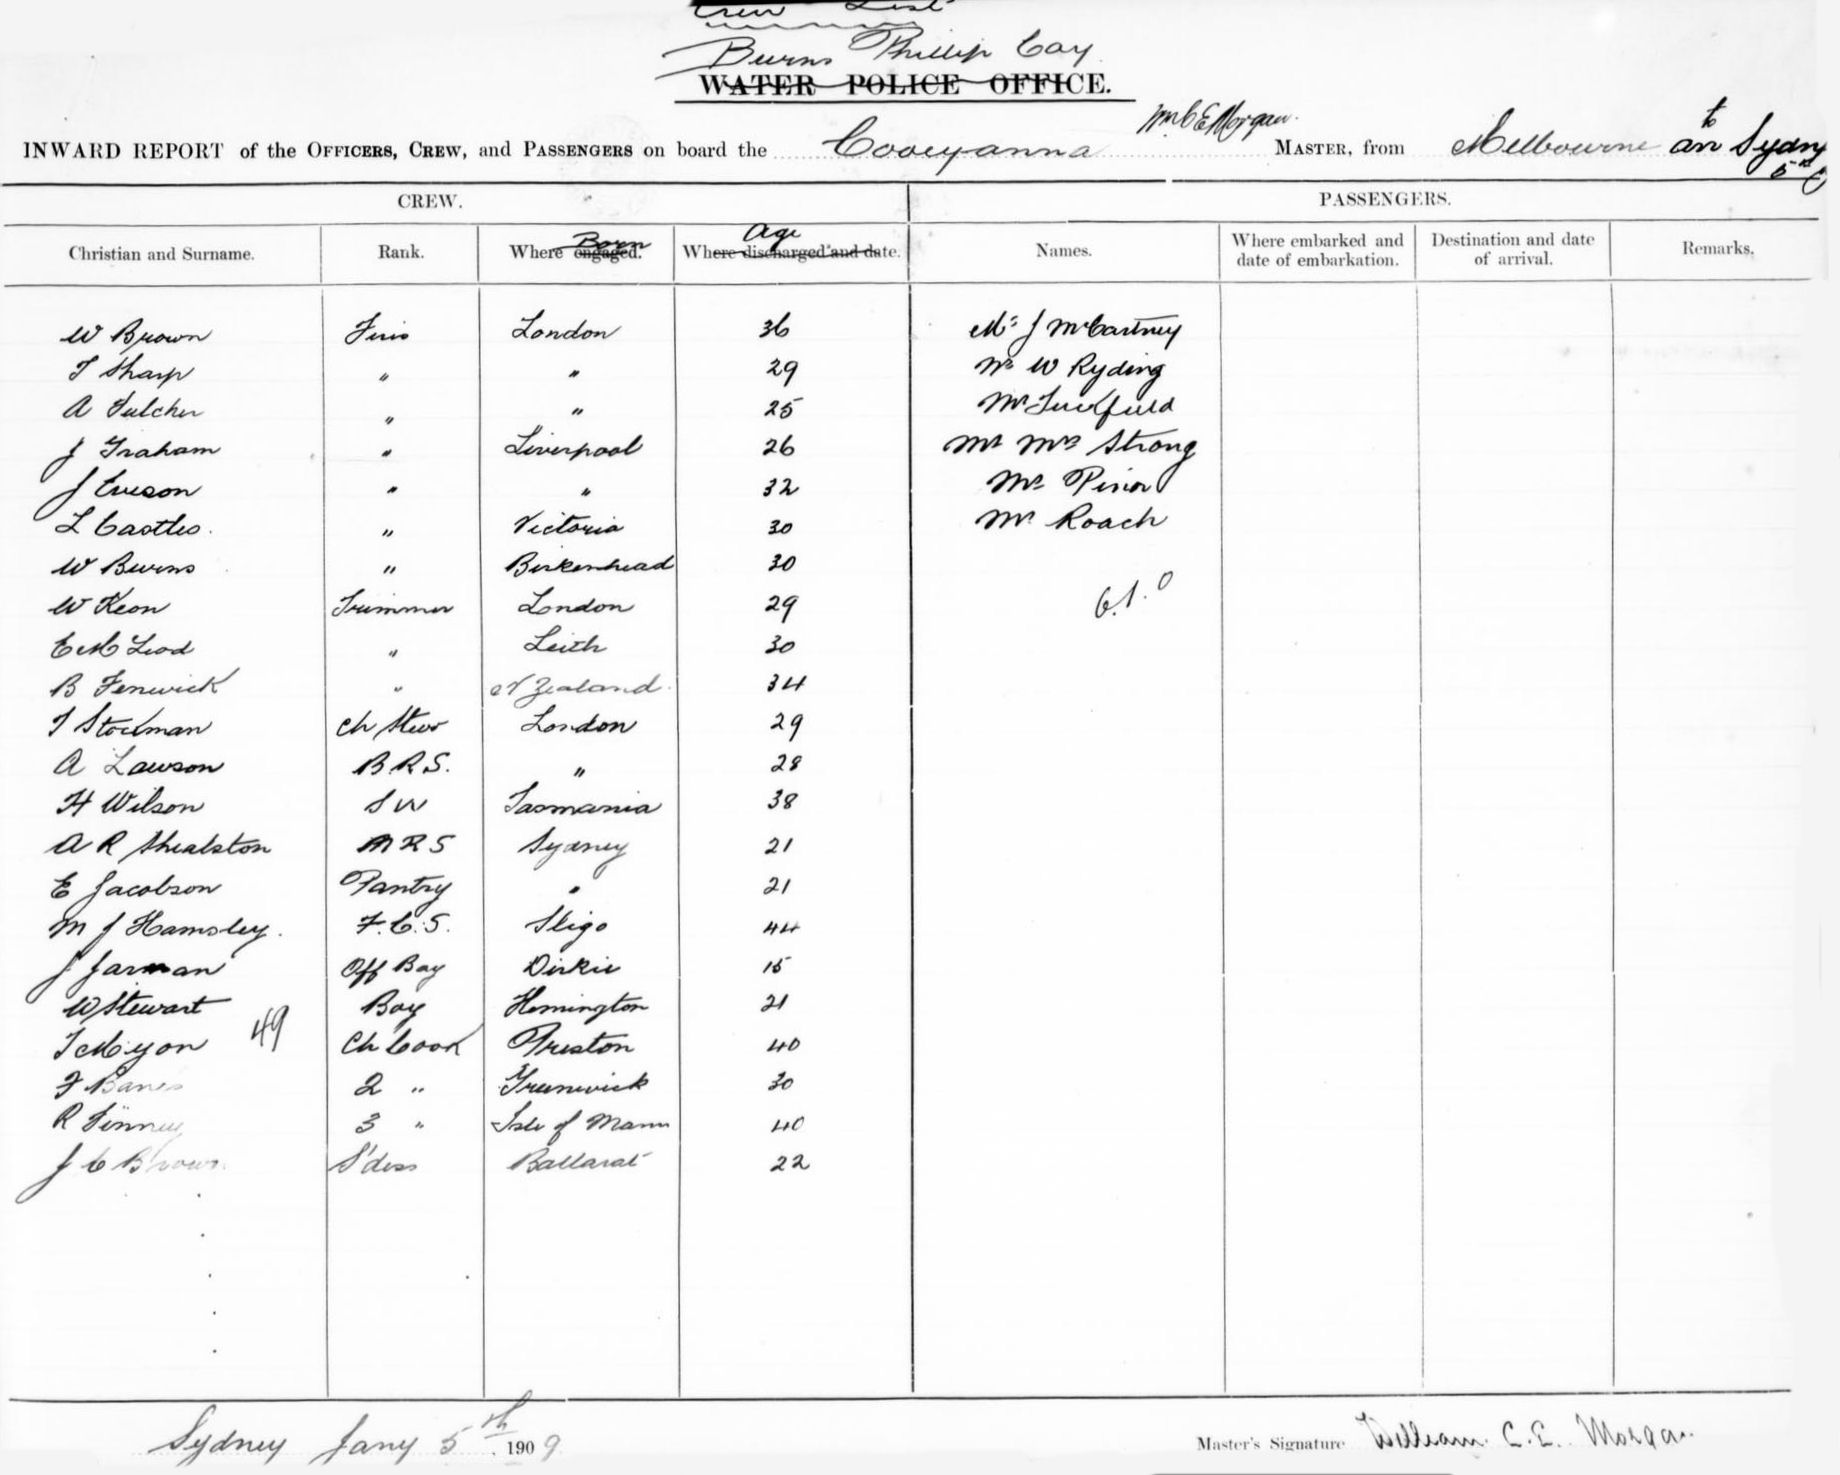 Crew List
Burns Phillip Coy
WATER POLICE OFFICE.
INWARD REPORT of the OFFICERS, CREW, and PASSENGERS on board the Cooeyanna Wm C E Morgan MASTER, from Melbourne to arr Sydny 5th
CREW. PASSENGERS.
Christian and Surname. Rank. Where engaged. Born Where discharged and date. Age Names. Where embarked and date of embarkation. Destination and date of arrival. Remarks.
W Brown Fire London 36 Mr J McCartney
T Sharp " " 29 Mr W Ryding
A Fulcher " " 25 Mr Tuckfield
J Graham " Liverpool 26 Mr Mrs Strong
J Eveson " " 32 Mr
L Castles. " Victoria 30 Mr Roach
W Burns " Birkenhead 30
W Keon Trimmer London 29
E McLeod " Leith 30
B Fenwick " N Zealand 34
T Stockman Ch Stew London 29
A Lawson B.R.S. " 28
H Wilson S W Tasmania 38
A R Shealston M R S Sydney 21
E Jacobson Pantry " 21
M J Hamsley. F.C.S. Sligo 44
J Jarman Off Boy 15
W Stewart Boy Hemington 21
49
T Ch Cook Preston 40
F Banes 2 " Greenwick 30
R Finney 3 " Isle of Mann 40
J C Brown S'dess Ballarat 22
Sydney Jany 5th 1909
Master's Signature William C. E. Morgan